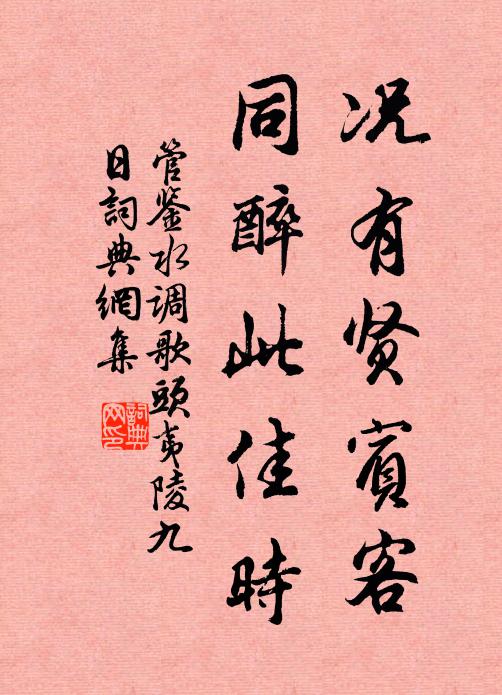 况有贤賓客
同醉此佳時
管鉴水调歌頭夷陵九
日詞典網集
詞典网印